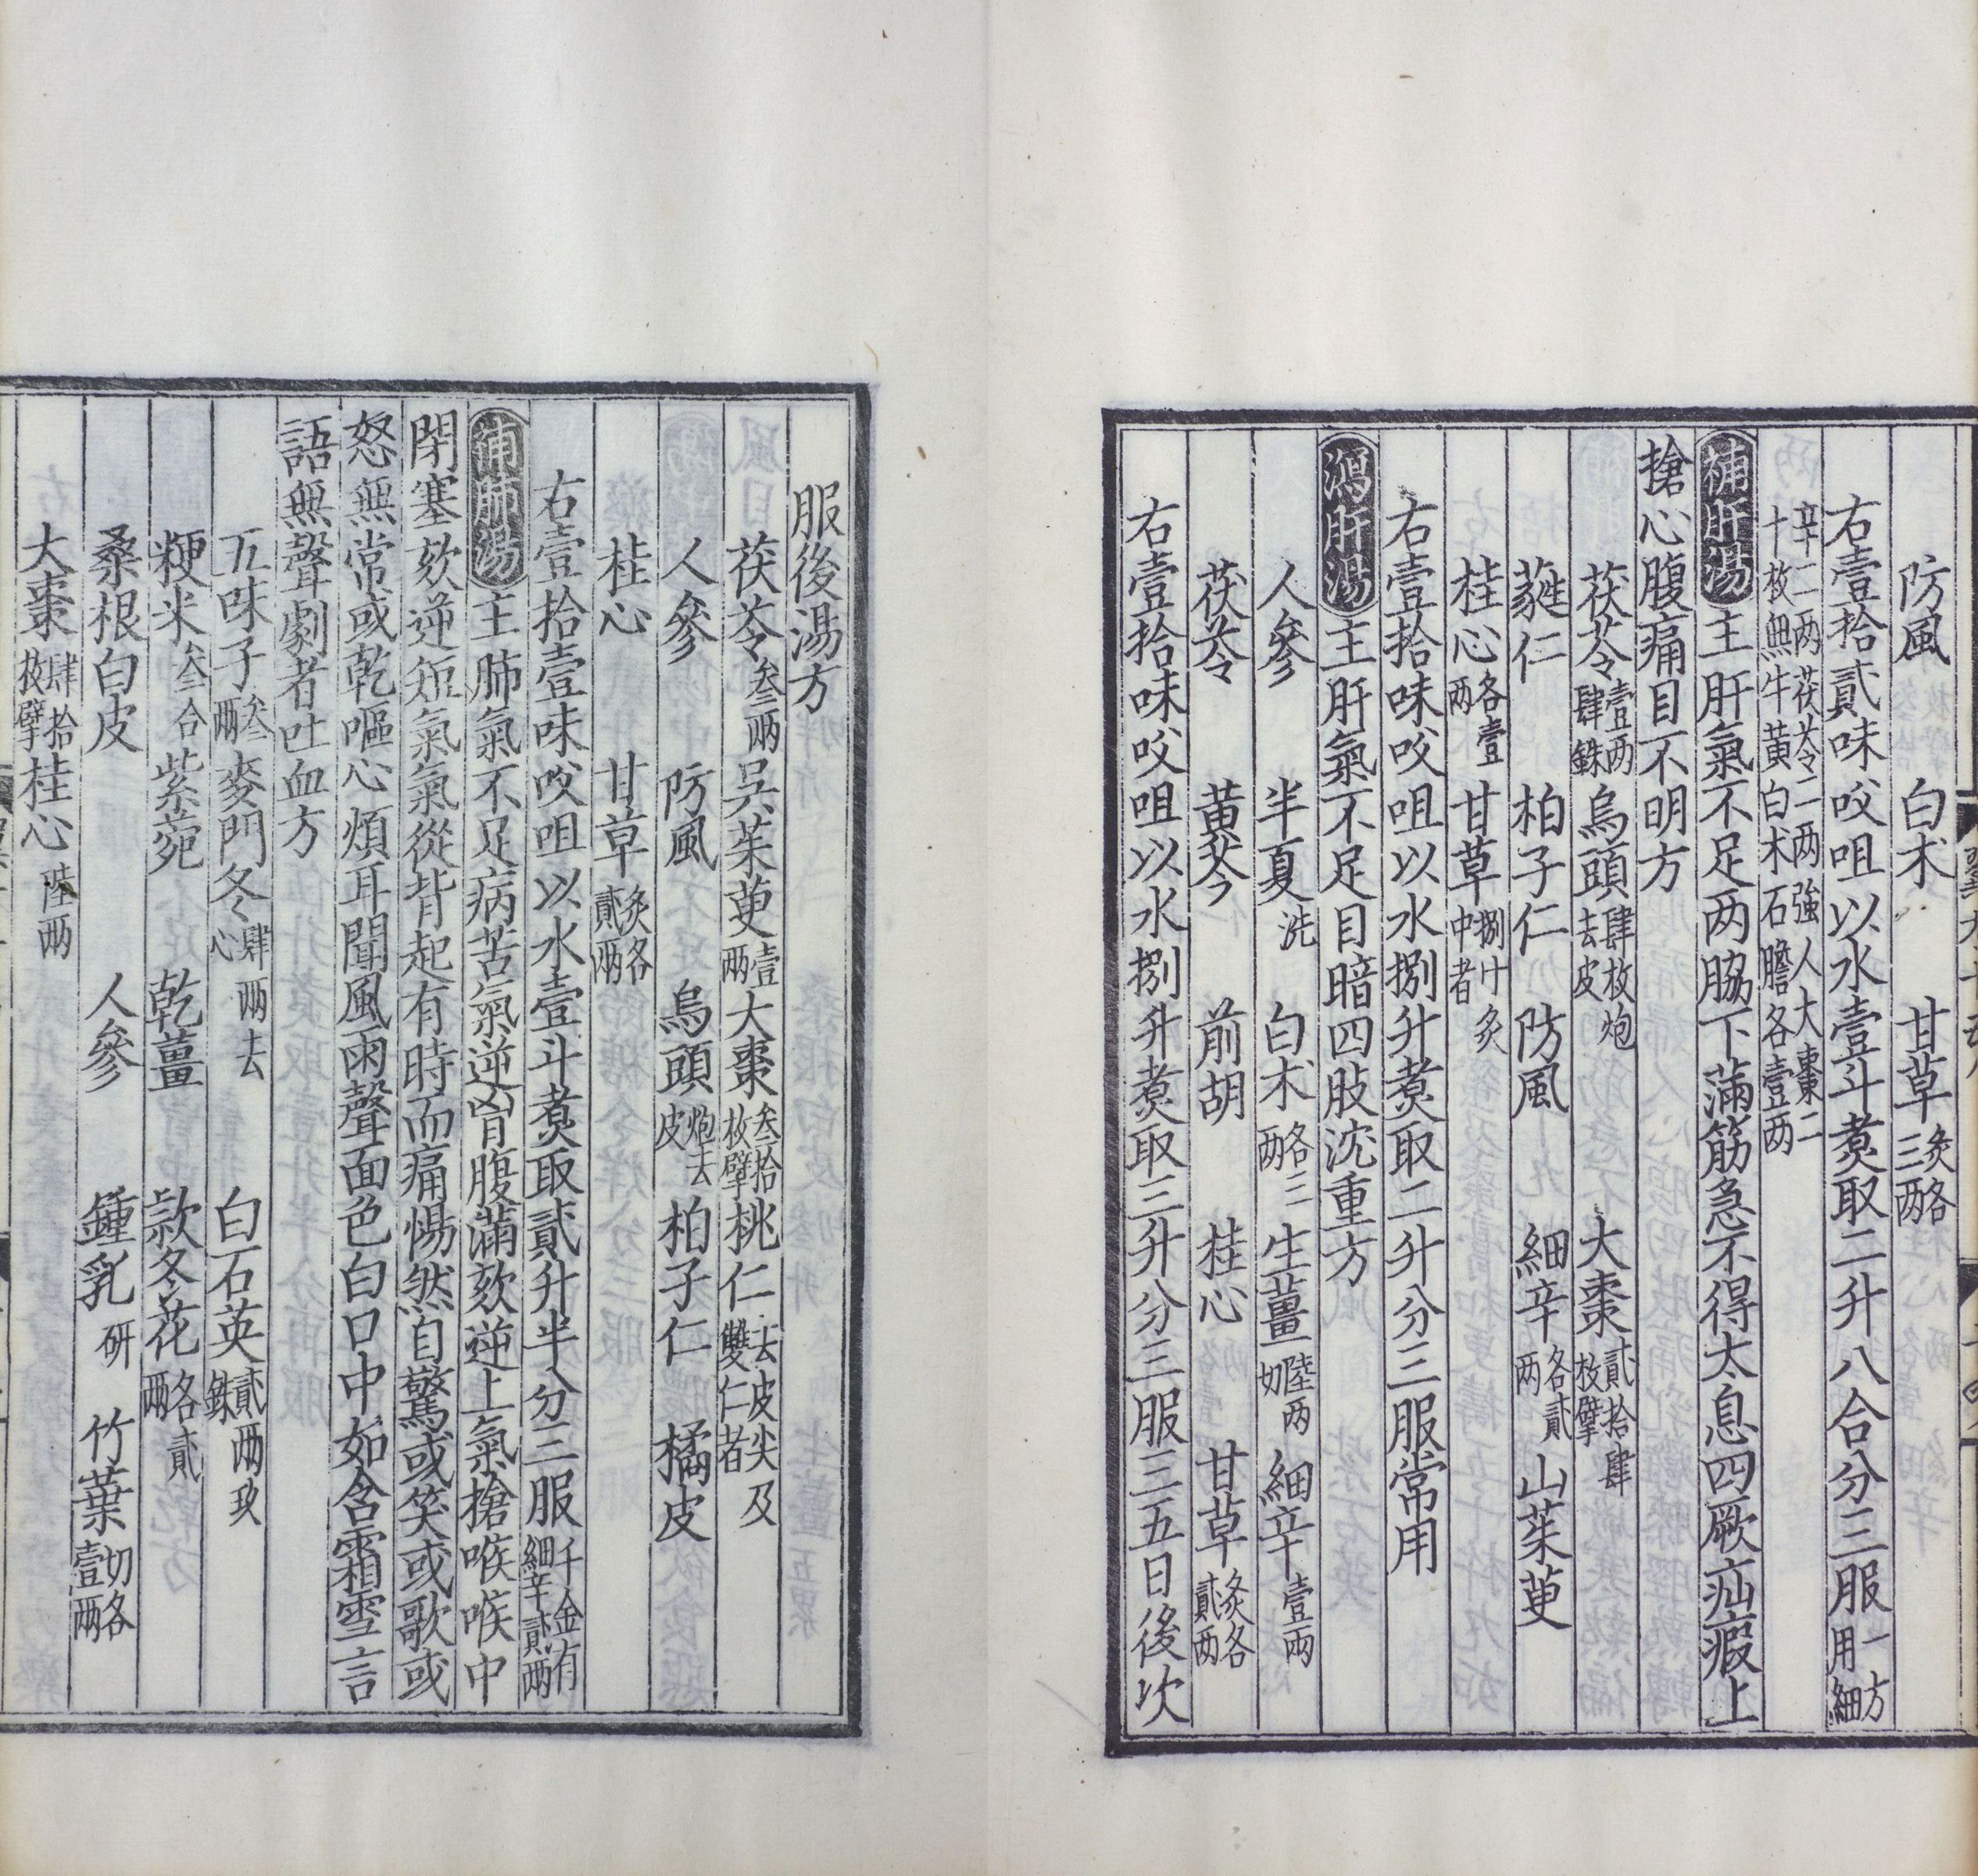 防風　白朮　甘草炙各三兩
右壹拾貳味㕮咀以水壹斗煮取二升八合分三服一方用細
辛二两茯苓二两強人大棗二十枚無牛黃白朮石膽各壹两
補肝湯主肝氣不足两脇下滿筋急不得太息四厥疝瘕上
搶心腹痛目不明方
茯苓壹两肆銖　烏頭肆枚炮去皮　大棗貳拾肆枚擘
蕤仁　柏子仁　防風　細辛各貳两　山茱萸
桂心各壹两　甘草捌什炙中者
右壹拾味㕮咀以水捌升煮取二升分三服常用
瀉肝湯主肝氣不足目暗四肢沈重方
人參　半夏洗　白朮各三两　生薑陸两切　細辛壹兩
茯苓　黃芩　前胡　桂心　甘草炙各貳两
右壹拾味㕮咀以水捌升煮取三升分三服三五日後次
服後湯方
茯苓叁兩　吳茱萸壹兩　大棗叁拾枚擘　桃仁去皮尖及雙仁者
人參　防風　烏頭炮去皮　柏子仁　橘皮
桂心　甘草炙各貳兩
右壹拾壹味㕮咀以水壹斗煮取貳升半分三服千金有細辛貳兩
補肺湯主肺氣不足病苦氣逆胷腹滿欬逆上氣搶喉喉中
閉塞欬逆短氣氣從背起有時而痛惕然自驚或笑或歌或
怒無常或乾嘔心煩耳聞風雨聲面色白口中如含霜雪言
語無聲劇者吐血方
五味子叁兩　麥門冬肆兩去心　白石英貳兩玖銖
粳米叁合　紫菀　乾薑　款冬花各貳兩
桑根白皮　人參　鍾乳研　竹葉切各壹兩
大棗肆拾枚擘　桂心陸兩